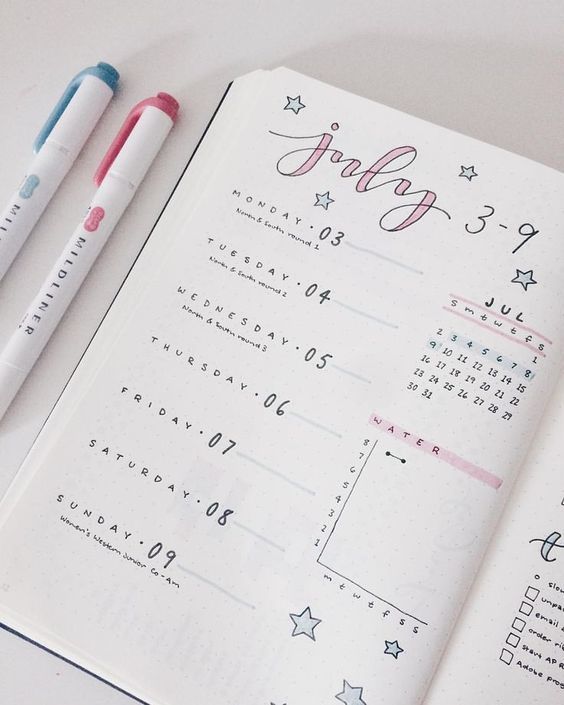 MILDLINER
MILDLINER
july 3-9
MONDAY · 03
North & South round 1
TUESDAY · 04
North & South round 2
WEDNESDAY · 05
North & South round 3
THURSDAY · 06
FRIDAY · 07
SATURDAY · 08
SUNDAY · 09
Women's Western Junior Co-Am
JUL
s m t w t f s
1
2 3 4 5 6 7 8
9 10 11 12 13 14 15
16 17 18 19 20 21 22
23 24 25 26 27 28 29
30 31
WATER
8
7
6
5
4
3
2
1
m t w t f s s
t
email
order
start
Adobe